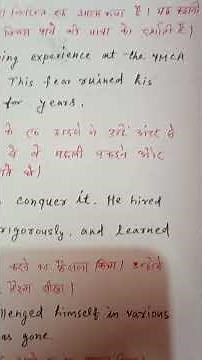 एक आत्म कथा है। यह कहानी
विजय पाने की यात्रा को दर्शाती है।
ing experience at the YMCA
This fear ruined his
for years.
के एक हादसे ने उन्हें अंदर से
ने मछली पकड़ने और
conquer it. He hired
rigorously, and learned
करने का फैसला किया। उन्होंने
तैरना सीखा।
llenged himself in various
as gone.